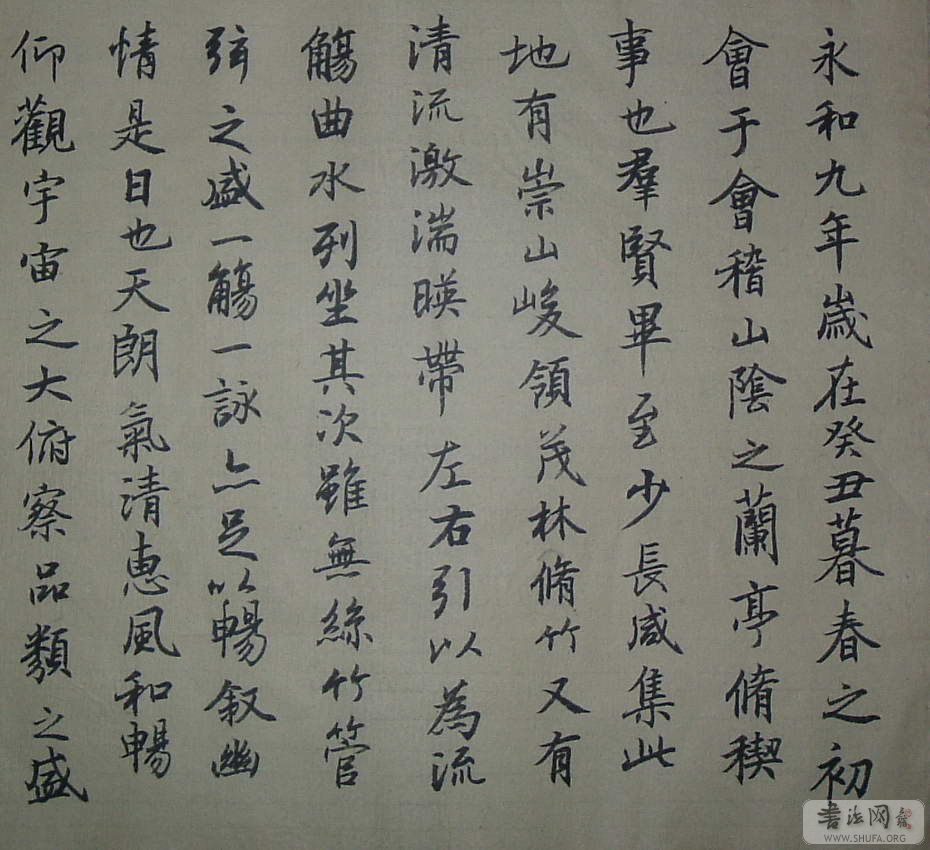 永和九年歲在癸丑暮春之初
會于會稽山陰之蘭亭脩稧
事也羣賢畢至少長咸集此
地有崇山峻領茂林脩竹又有
清流激湍暎帶左右引以為流
觴曲水列坐其次雖無絲竹管
弦之盛一觴一詠亦足以暢叙幽
情是日也天朗氣清惠風和暢
仰觀宇宙之大俯察品類之盛
書法网
WWW.SHUFA.ORG